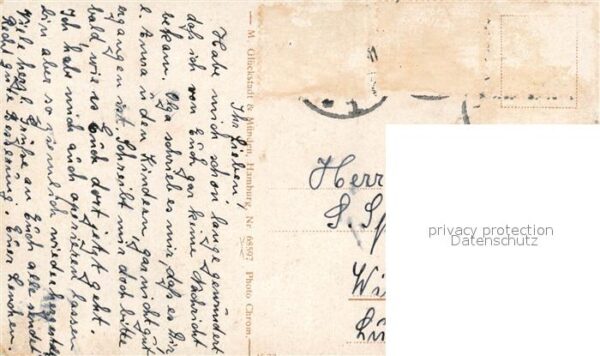 Ihr Lieben!
Habe mich schon lange gewundert
daß ich von Euch gar keine Nachricht
bekam. Da schrieb es mir, daß es Dir
l. Anna u den Kindern gar nicht gut
ergangen ist. Schreibt mir doch bitte
bald, wie es Euch dort jetzt geht.
Ich habe mich auch operieren lassen
bin aber so ziemlich wieder hergestellt
Viele herzl. Grüße an Euch alle sendet
Recht gute Besserung. Euer Lenchen.
M. Glückstadt & Münden, Hamburg, Nr. 68597 Photo Chrom.
Herr
S. Sp
Wi
Lü
privacy protection
Datenschutz